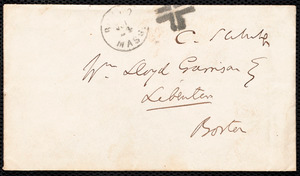 MASS.
C.
Wm Lloyd Garrison
Liberator
Boston